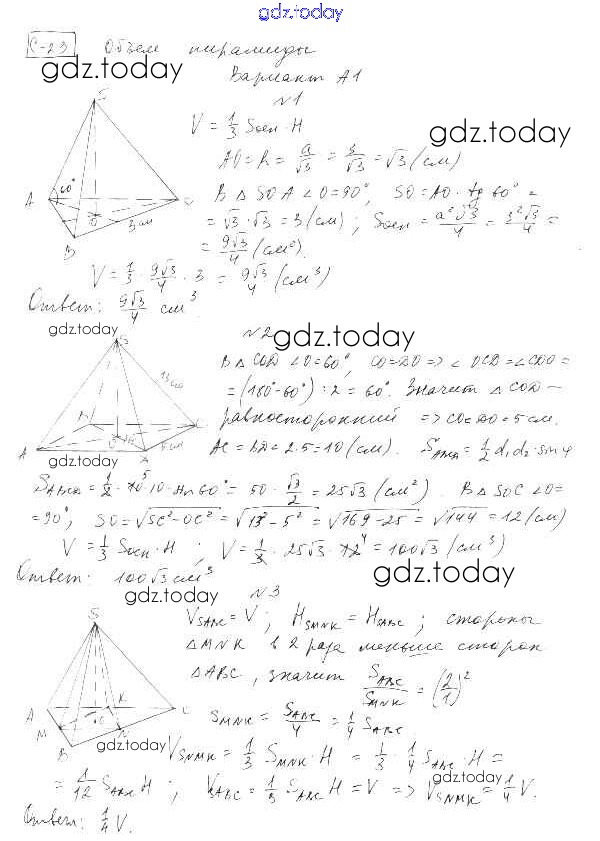 gdz.today
С-23 Объем пирамиды
gdz.today
Вариант А1
№1
S
V = 1/3 Sосн · H
gdz.today
AO = R = a/√3 = 3/√3 = √3 (см)
A 60° C
В Δ SOA ∠O = 90°, SO = AO · tg 60° =
O 3 см
B
= √3 · √3 = 3 (см); Sосн = a²√3/4 = 3²√3/4 =
= 9√3/4 (см²).
V = 1/3 · 9√3/4 · 3 = 9√3/4 (см³)
Ответ: 9√3/4 см³.
gdz.today
№2
gdz.today
S
13 см
В Δ COD ∠O = 60°, CO = DO => ∠ OCD = ∠CDO =
= (180° - 60°) : 2 = 60°. Значит Δ COD —
равносторонний => CO = DO = 5 см.
A C
gdz.today
AC = BD = 2 · 5 = 10 (см). SABCD = 1/2 d₁d₂ · sin φ
SABCD = 1/2 · 10 · 10 · sin 60° = 50 · √3/2 = 25√3 (см²). В Δ SOC ∠O =
= 90°, SO = √SC² - OC² = √13² - 5² = √169 - 25 = √144 = 12 (см)
V = 1/3 Sосн · H ; V = 1/3 · 25√3 · 12 = 100√3 (см³)
Ответ: 100√3 см³
gdz.today
gdz.today
№3
S
VSABC = V ; HSMNK = HSABC ; стороны
Δ MNK в 2 раза меньше сторон
Δ ABC, значит SABC/SMNK = (2/1)²
A K C
M O N
B
SMNK = SABC/4 = 1/4 SABC
gdz.today
VSNMK = 1/3 SMNK · H = 1/3 · 1/4 SABC · H =
gdz.today
= 1/12 SABC H ; VSABC = 1/3 SABC H = V => VSNMK = 1/4 V.
Ответ: 1/4 V.
gdz.today